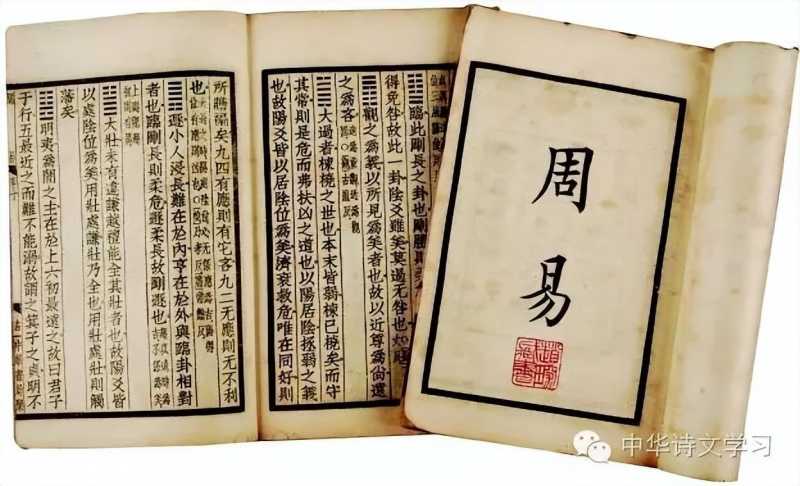 周易
䷒臨此剛長之卦也剛勝則柔
得免咎故此一卦陰爻雖美莫過无咎也
䷓觀之爲義以所見爲美者也故以近尊爲尚遠
之爲咎
䷛大過者棟橈之世也本末皆弱棟已橈矣而守
其常則是危而弗扶凶之道也以陽居陰拯弱之義
也故陽爻皆以居陰位爲美濟衰救危唯在同好則
所贍褊矣九四有應則有它吝九二无應則无不利
也
䷠遯小人浸長難在於內亨在於外與臨卦相對
者也臨剛長則柔危遯柔長故剛遯也
䷡大壯未有違謙越禮能全其壯者也故陽爻皆
以處陰位爲美用壯處謙壯乃全也用壯處壯則觸
藩矣
䷣明夷爲闇之主在於上六初最遠之故曰君子
于行五最近之而難不能溺故謂之箕子之貞明不
中华诗文学习